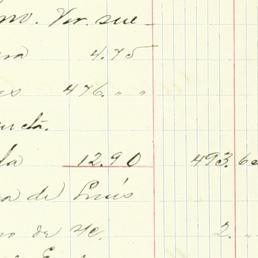 no. Ver. sue-
ra 4.75
es 476. " "
ueta.
la 12.90 493.6
a de Luis
no de yc. 2. "